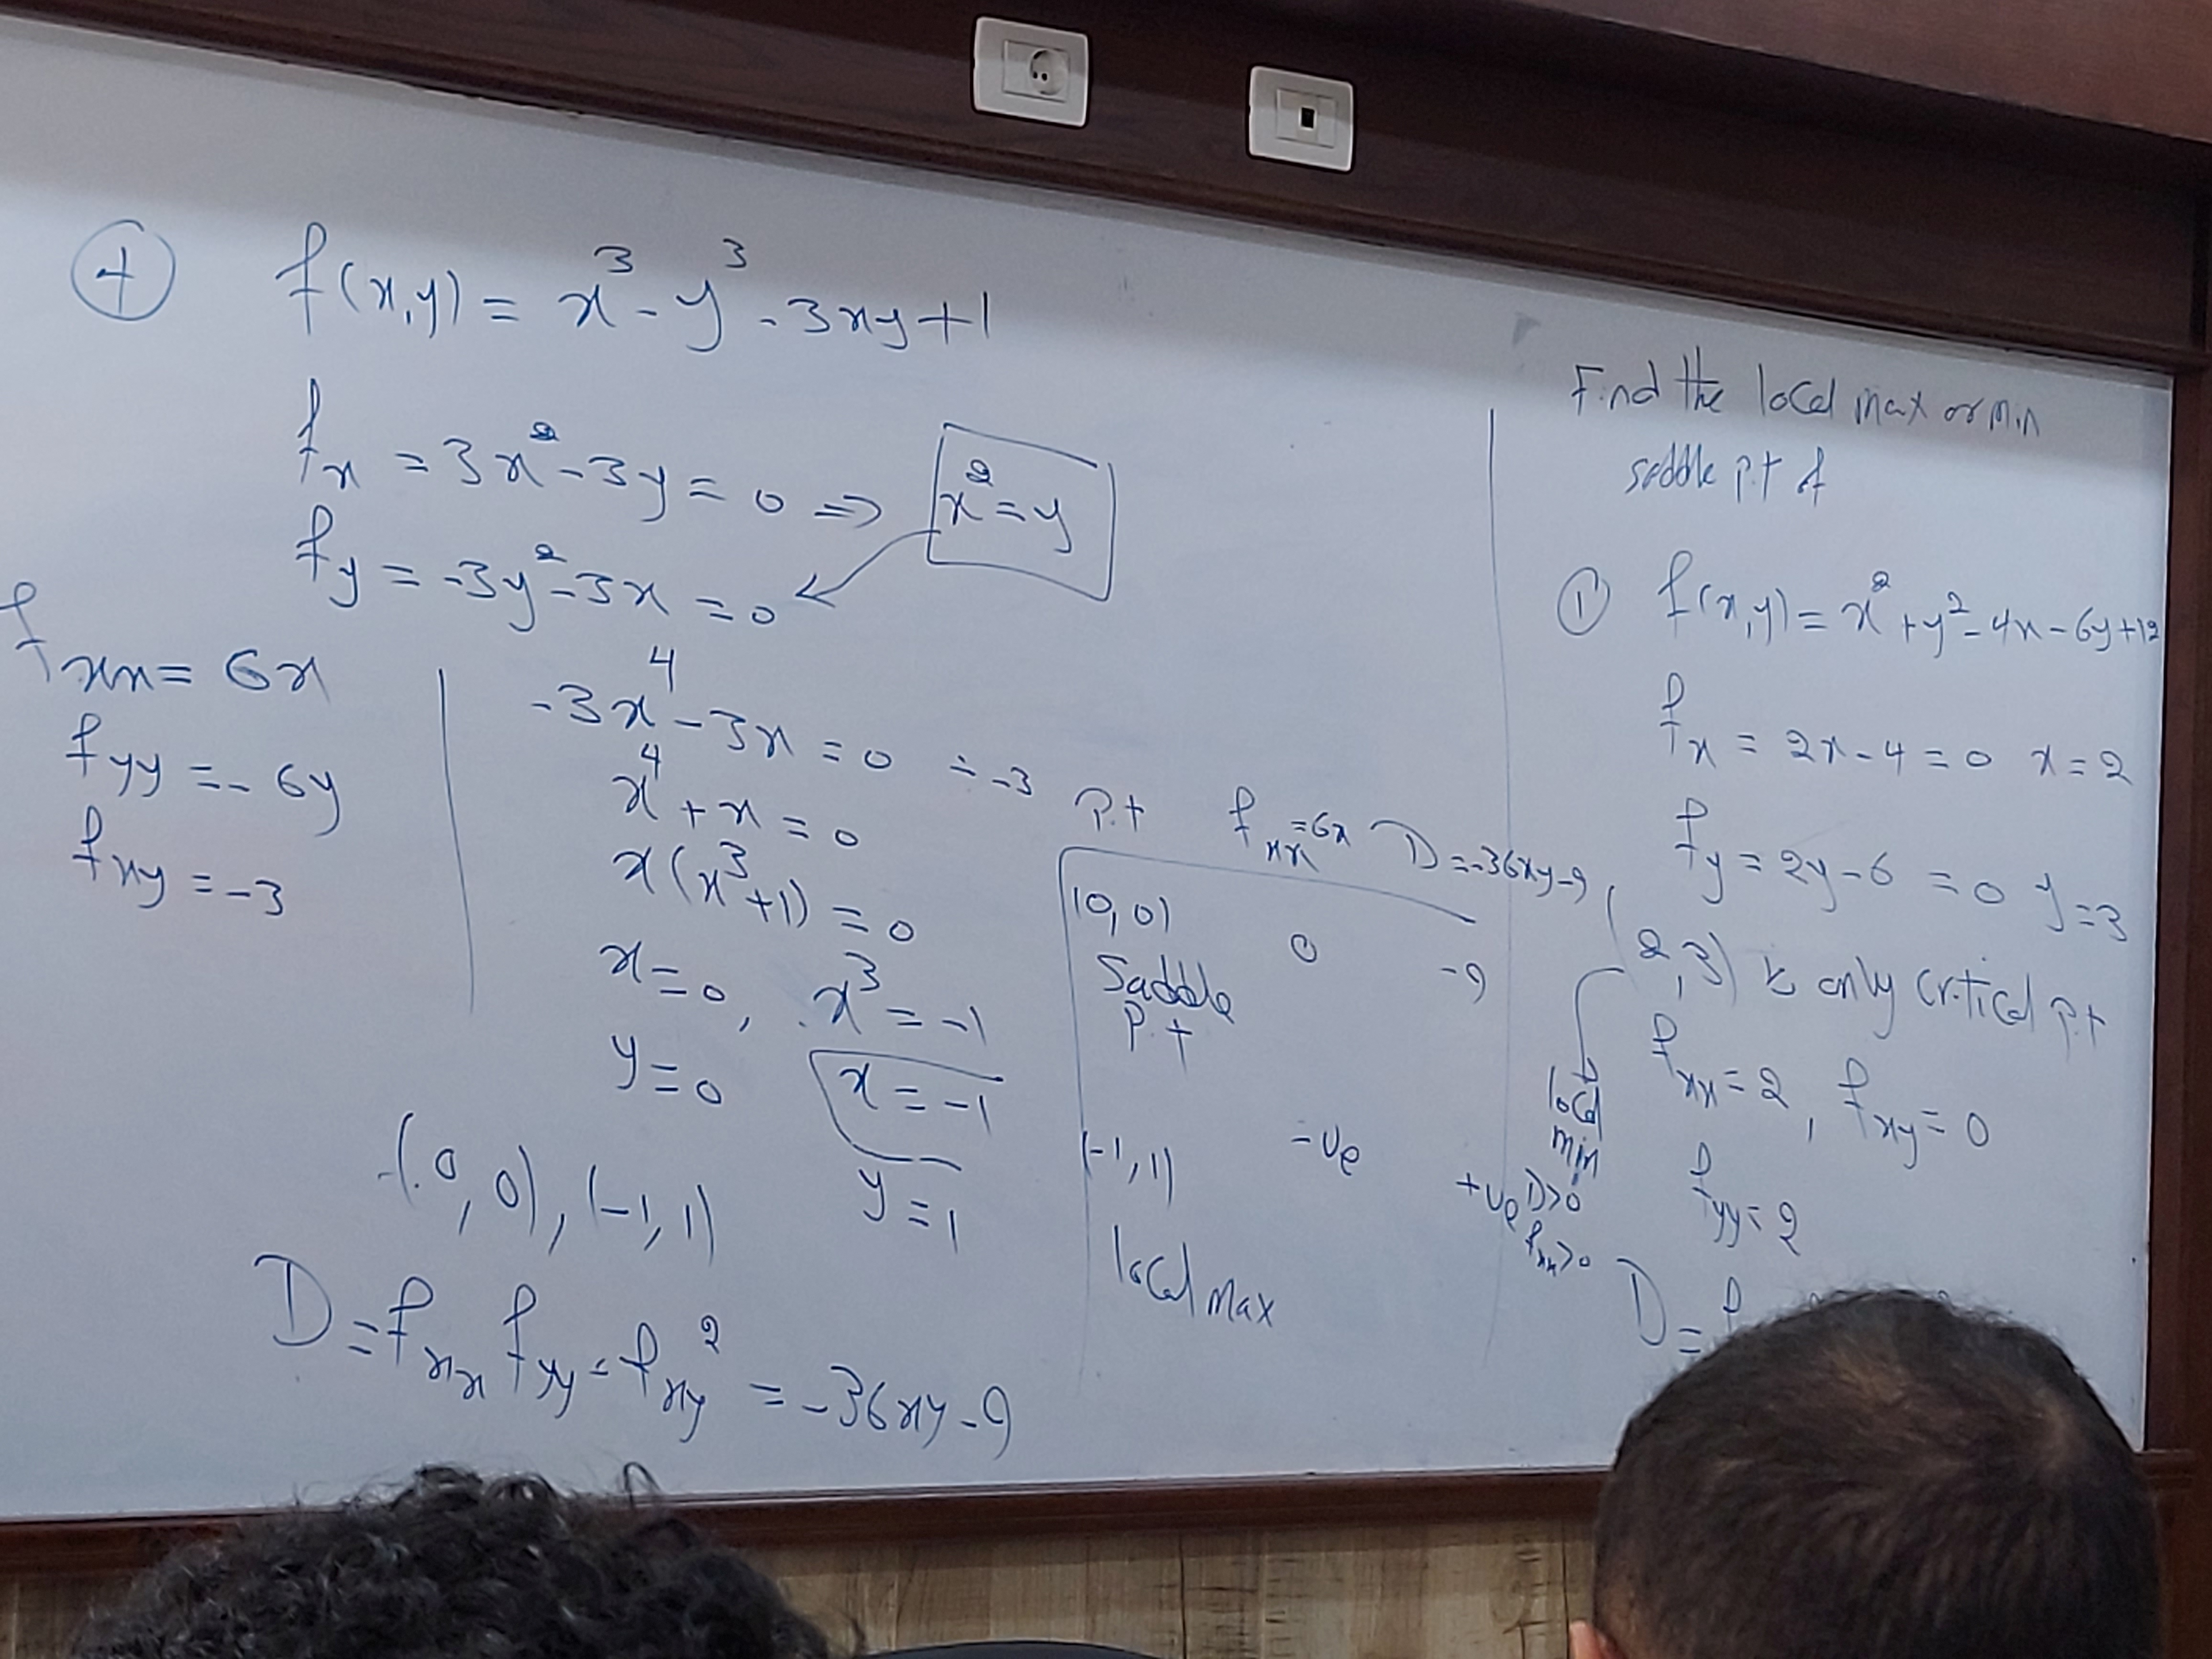 ④ f(x,y) = x³ - y³ - 3xy + 1
f_x = 3x² - 3y = 0 ⇒ x² = y
f_y = -3y² - 3x = 0
f_xx = 6x
f_yy = - 6y
f_xy = -3
-3x⁴ - 3x = 0 ÷ -3
x⁴ + x = 0
x(x³ + 1) = 0
x = 0, x³ = -1
y = 0 x = -1
y = 1
(0, 0), (-1, 1)
D = f_xx f_yy - f_xy² = -36xy - 9
P.t f_xx = 6x D = -36xy - 9
(0, 0) 0 -9
Saddle
P.t
(-1, 1) -ve +ve
local max
Find the local max or min
saddle p.t of
① f(x,y) = x² + y² - 4x - 6y + 12
f_x = 2x - 4 = 0 x = 2
f_y = 2y - 6 = 0 y = 3
(2, 3) is only critical p.t
local
min
D>0
f_xx>0
f_xx = 2, f_xy = 0
f_yy = 2
D = f